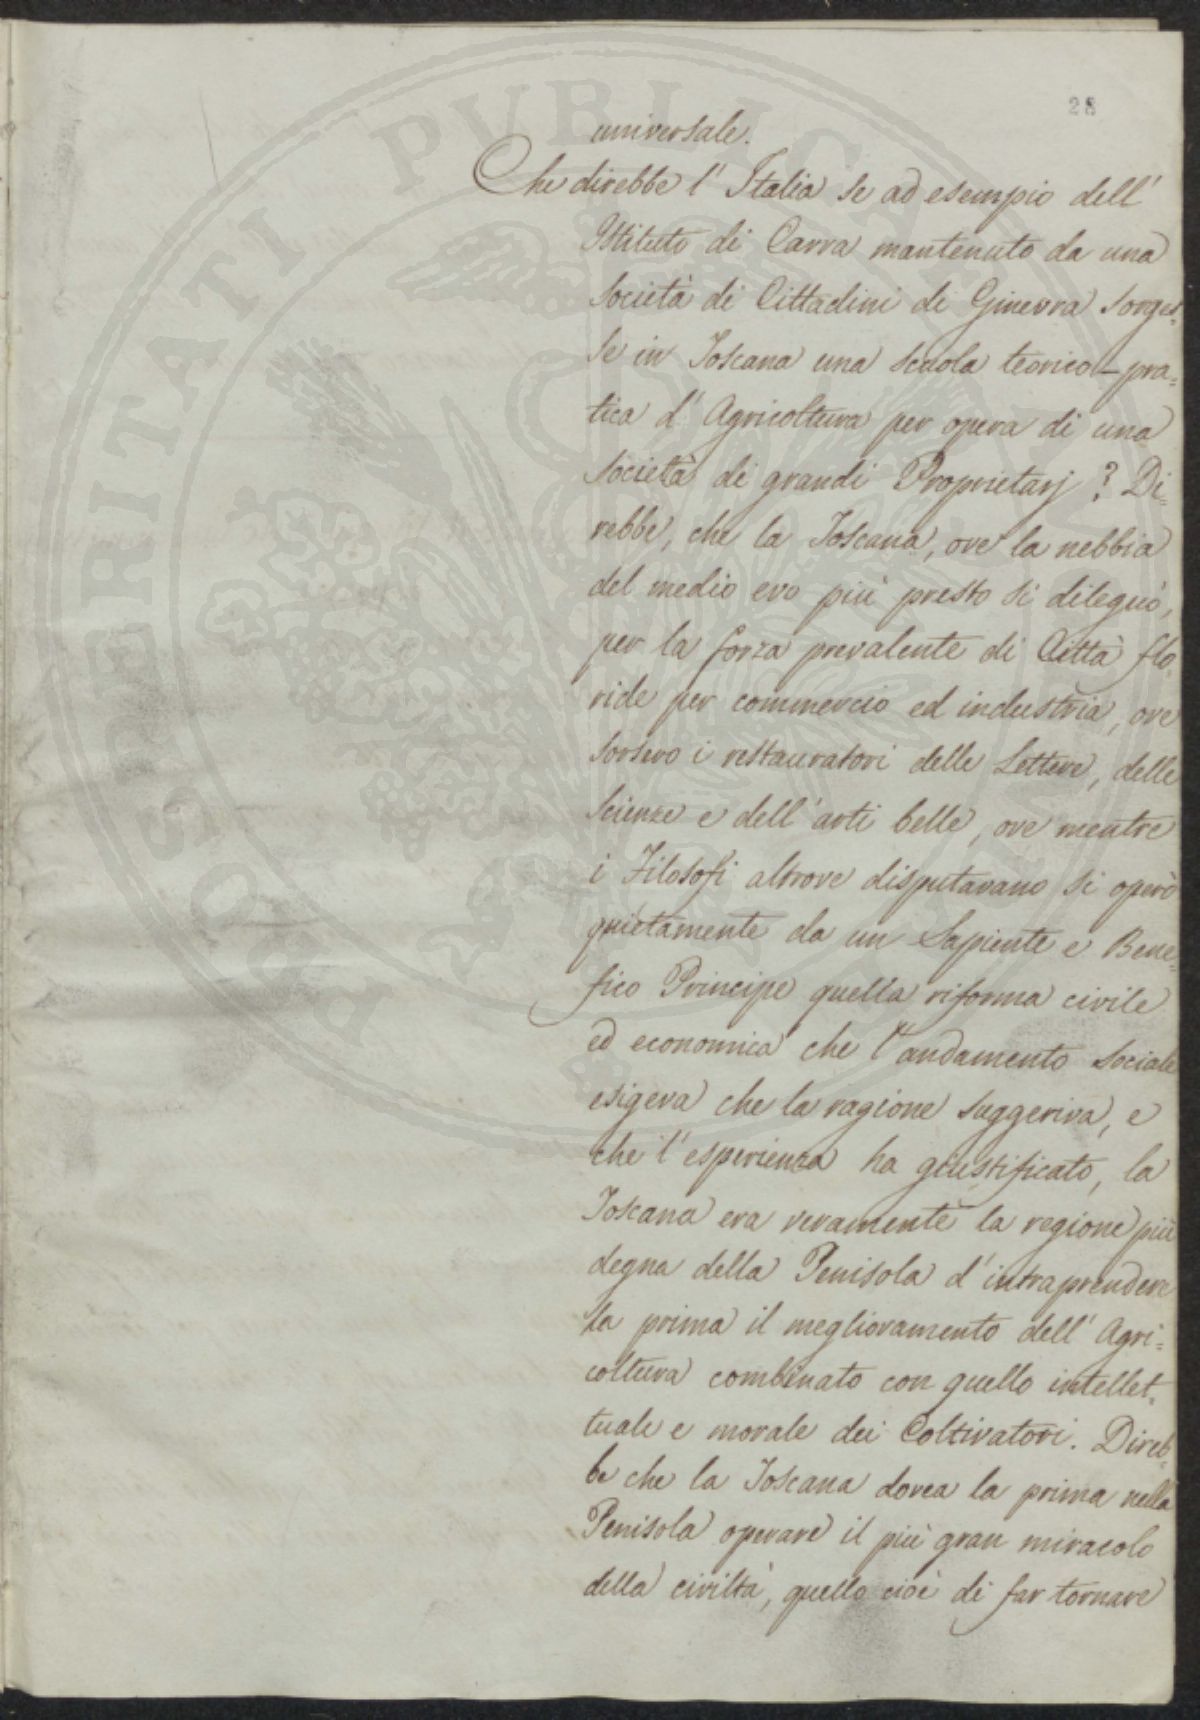 28
universale.
Che direbbe l'Italia se ad esempio dell'
Istituto di Carra mantenuto da una
Società di Cittadini di Ginevra sorges=
se in Toscana una scuola teorico-pra=
tica d'Agricoltura per opera di una
società di grandi Proprietarj? Di=
rebbe, che la Toscana, ove la nebbia
del medio evo più presto si dileguò,
per la forza prevalente di Città flo=
ride per commercio ed industria, ove
sorsero i restauratori delle Lettere, delle
Scienze e dell'arti belle, ove mentre
i Filosofi altrove disputavano si operò
quietamente da un Sapiente e Bene=
fico Principe quella riforma civile
ed economica che l'andamento sociale
esigeva che la ragione suggeriva, e
che l'esperienza ha giustificato, la
Toscana era veramente la regione più
degna della Penisola d'intraprendere
la prima il miglioramento dell'Agri=
coltura combinato con quello intellet=
tuale e morale dei Coltivatori. Direb=
be che la Toscana dovea la prima nella
Penisola operare il più gran miracolo
della civiltà, quello cioè di far tornare
PROSPERITATI PUBLICAE